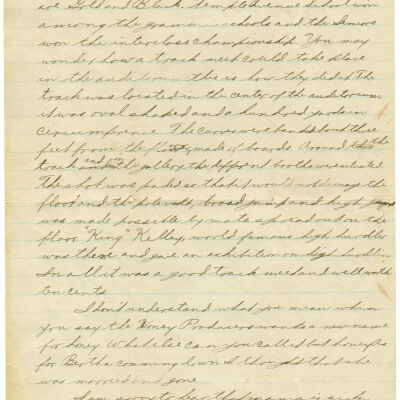 are Gold and Black. Temple Avenue School won
among the grammar schools and the Seniors
won the interclass championship. You may
wonder how a track meet could take place
in the auditorium this is how they did it. The
track was located in the center of the auditorium
it was oval shaped and a hundred yards in
circumference. The curves were banked out three
feet from the floor, made of boards. Around the
track and in the gallery the different booths were situated.
The shot was padded so that it would not damage the
floor and the pole vault, broad jump and high jump
was made possible by mats spread out on the
floor. "King" Kelley, world famous high hurdler
was there and gave an exhibition on high hurdling.
In all it was a good track meet and well worth
ten cents.
I don't understand what you mean when
you say the Honey Producers wands a new name
for honey. What else can you call it but honey. As
for Bertha comming down I thought that she
was married and gone.
I am sorry to hear that mama is sick